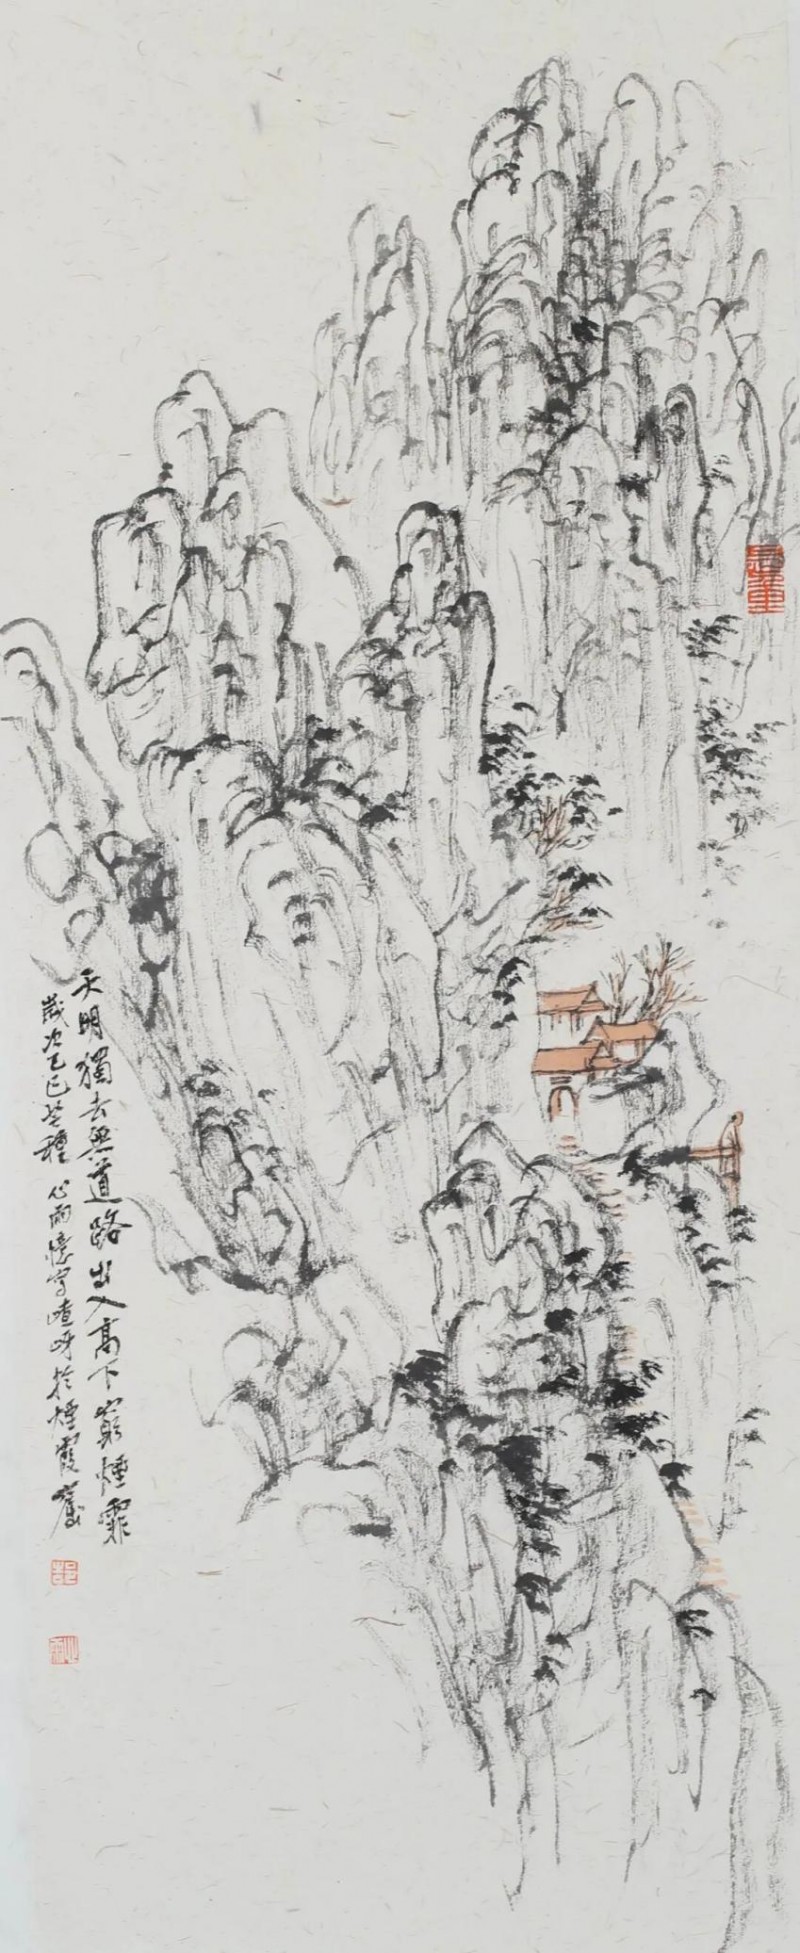 天明獨去無道路出入高下窮煙霏
歲次乙巳芒種 心雨憶寫嵖岈於煙霞
心雨